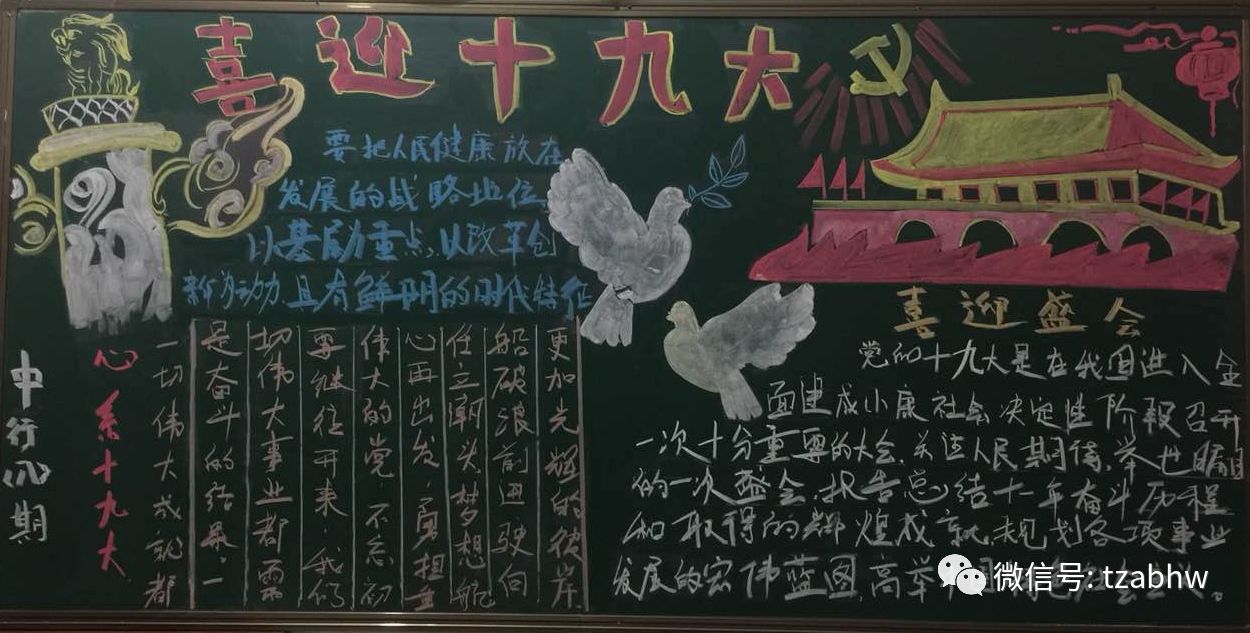 喜迎十九大
要把人民健康放在
发展的战略地位
以基励重点、以改革创
新为动力 且有鲜明的时代特征
中行四期
心系十九大
一切伟大成就都
是奋斗的结果。一
切伟大事业都需
要继往开来!我们
伟大的党,不忘初
心再出发,勇担重
任立潮头,梦想
船破浪前进驶向
更加光辉的彼岸
喜迎盛会
党的十九大是在我国进入全
面建成小康社会决定性阶段召开
一次十分重要的大会,关注人民期待,举世瞩目
的一次盛会,报告总结十一年奋斗历程
和取得的辉煌成就,规划各项事业
发展的宏伟蓝图,高举
微信号: tzabhw